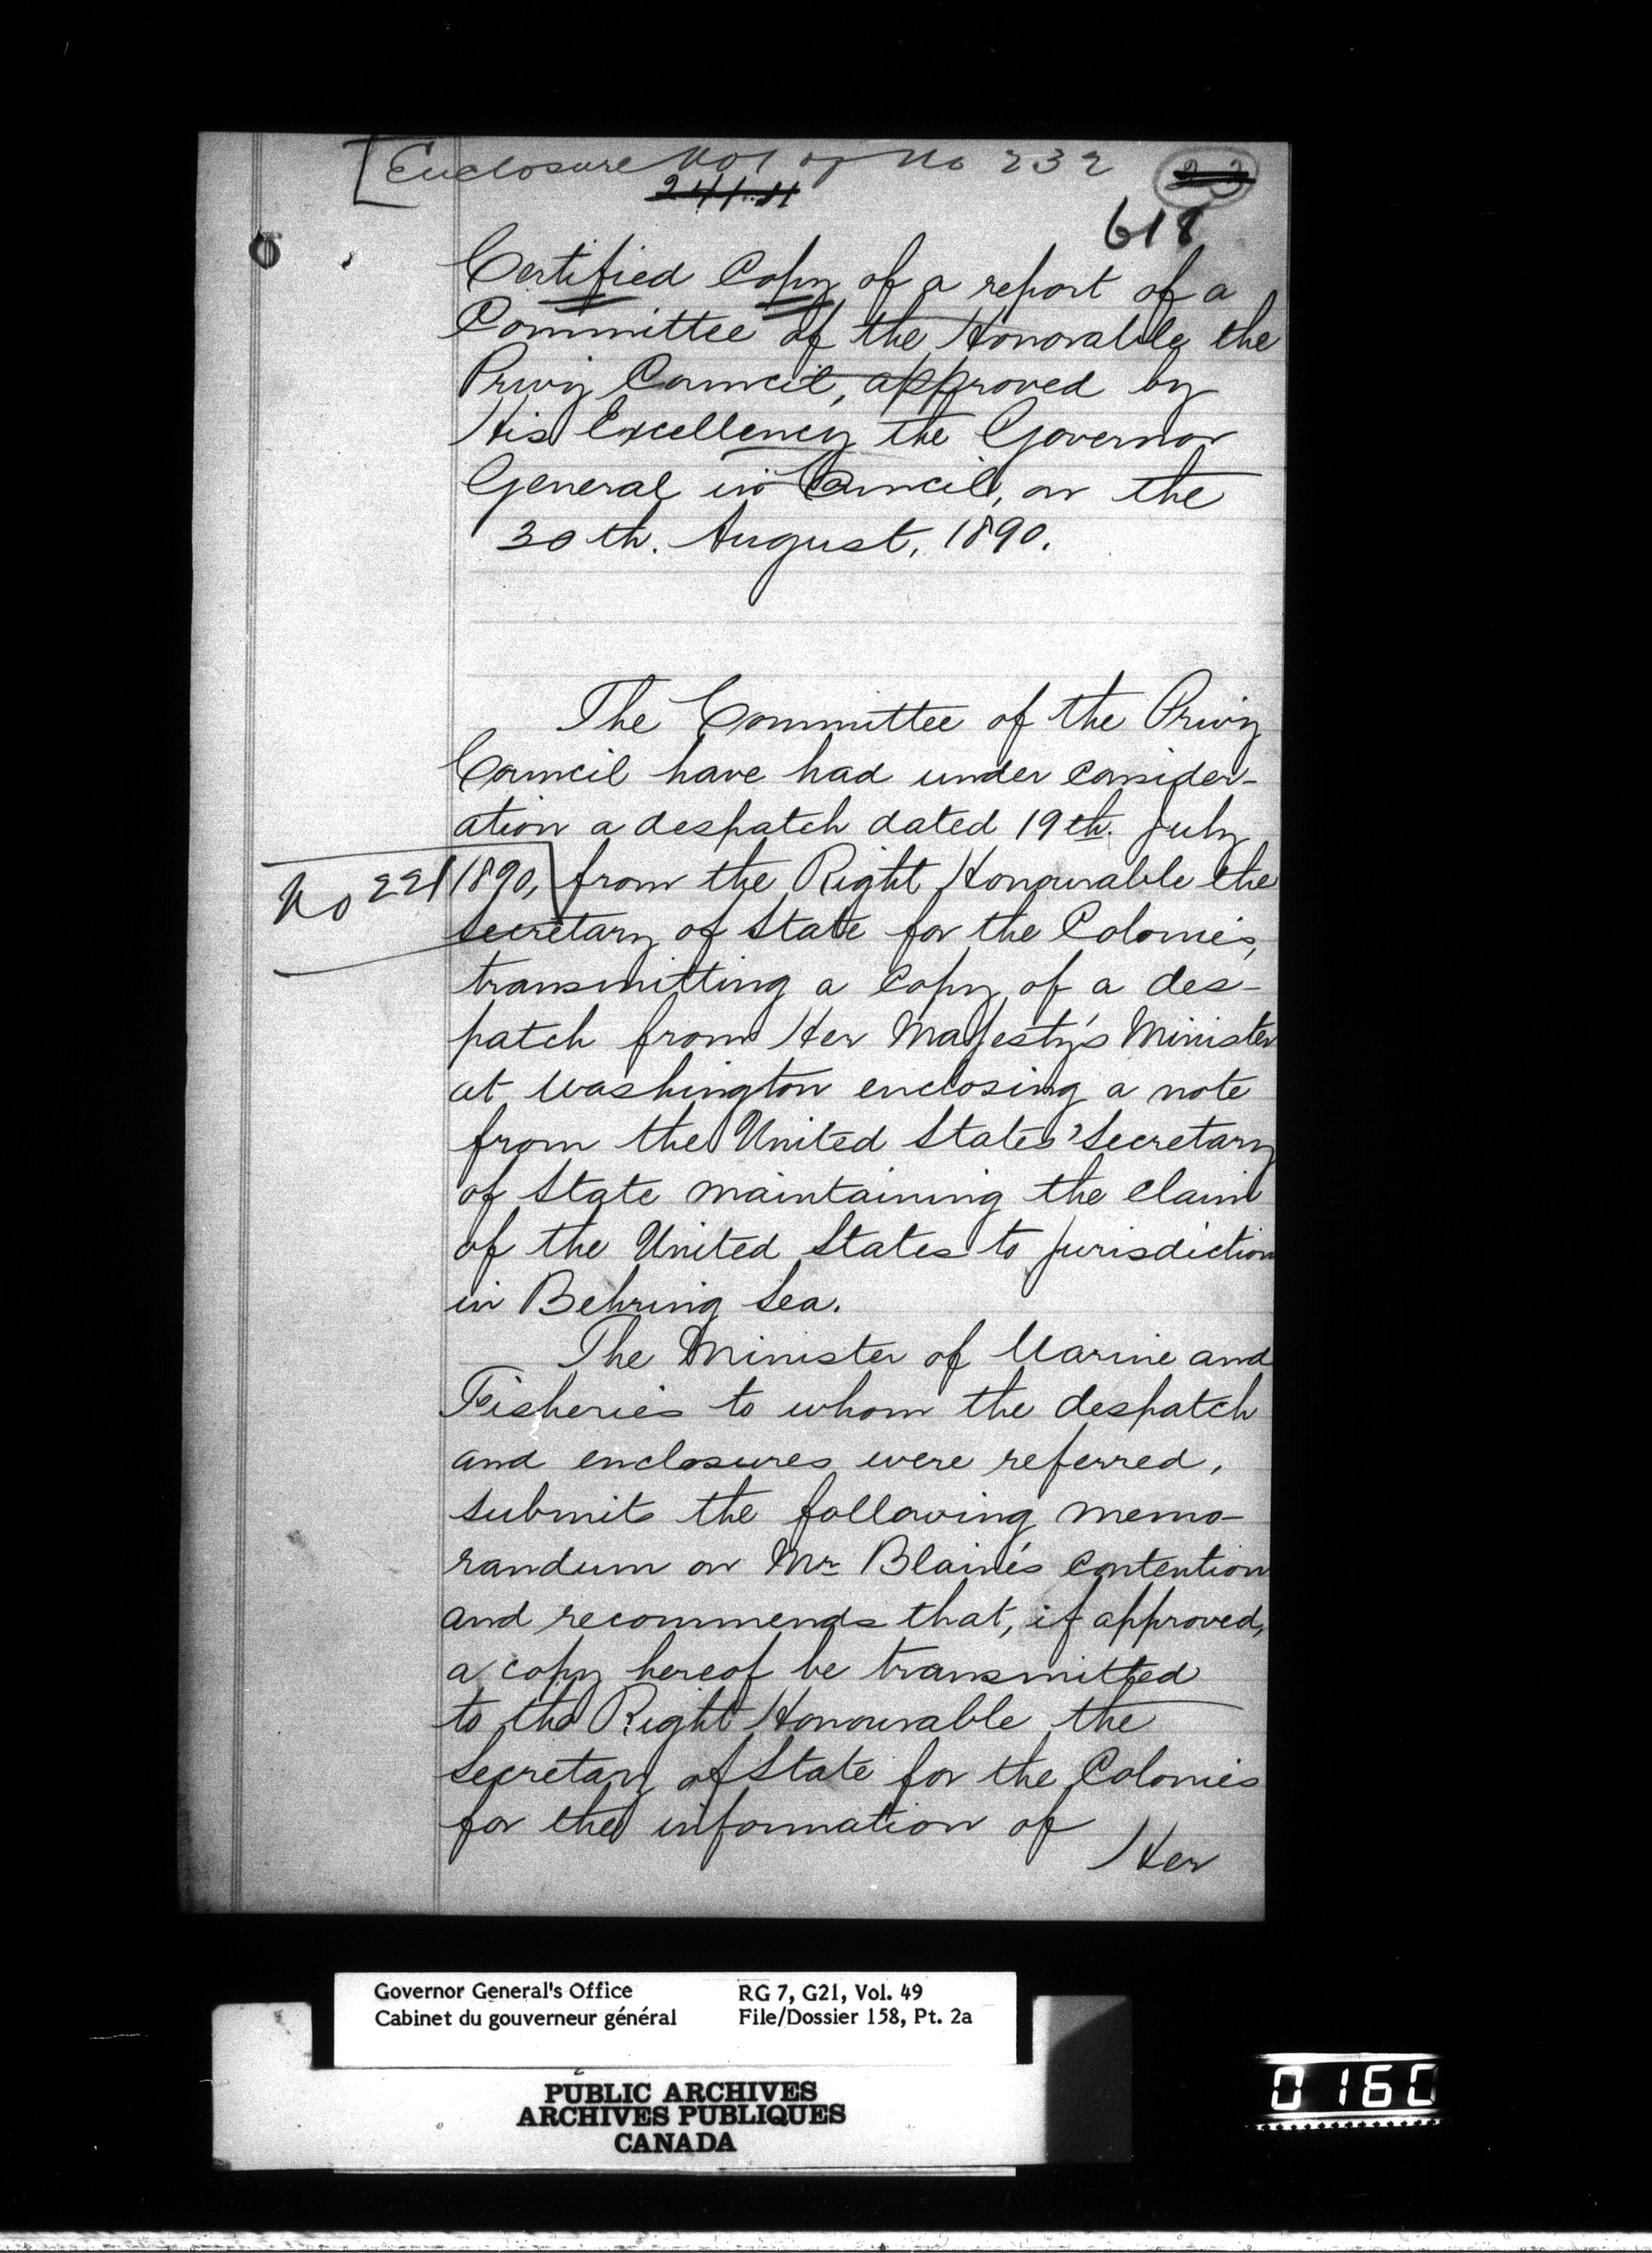 [Enclosure No 1 of No 232
618
Certified Copy of a report of a
Committee of the Honorable the
Privy Council, approved by
His Excellency the Governor
General in Council, on the
30th. August, 1890.
The Committee of the Privy
Council have had under consider-
ation a despatch dated 19th. July
No 221
1890, from the Right Honourable the
Secretary of State for the Colonies,
transmitting a copy of a des-
patch from Her Majesty's Minister
at Washington enclosing a note
from the United States' Secretary
of State maintaining the claim
of the United States to jurisdiction
in Behring Sea.
The Minister of Marine and
Fisheries to whom the despatch
and enclosures were referred,
submits the following memo-
randum on Mr Blaine's contention
and recommends that, if approved,
a copy hereof be transmitted
to the Right Honourable the
Secretary of State for the Colonies
for the information of
Her
Governor General's Office
Cabinet du gouverneur général
RG 7, G21, Vol. 49
File/Dossier 158, Pt. 2a
PUBLIC ARCHIVES
ARCHIVES PUBLIQUES
CANADA
0160